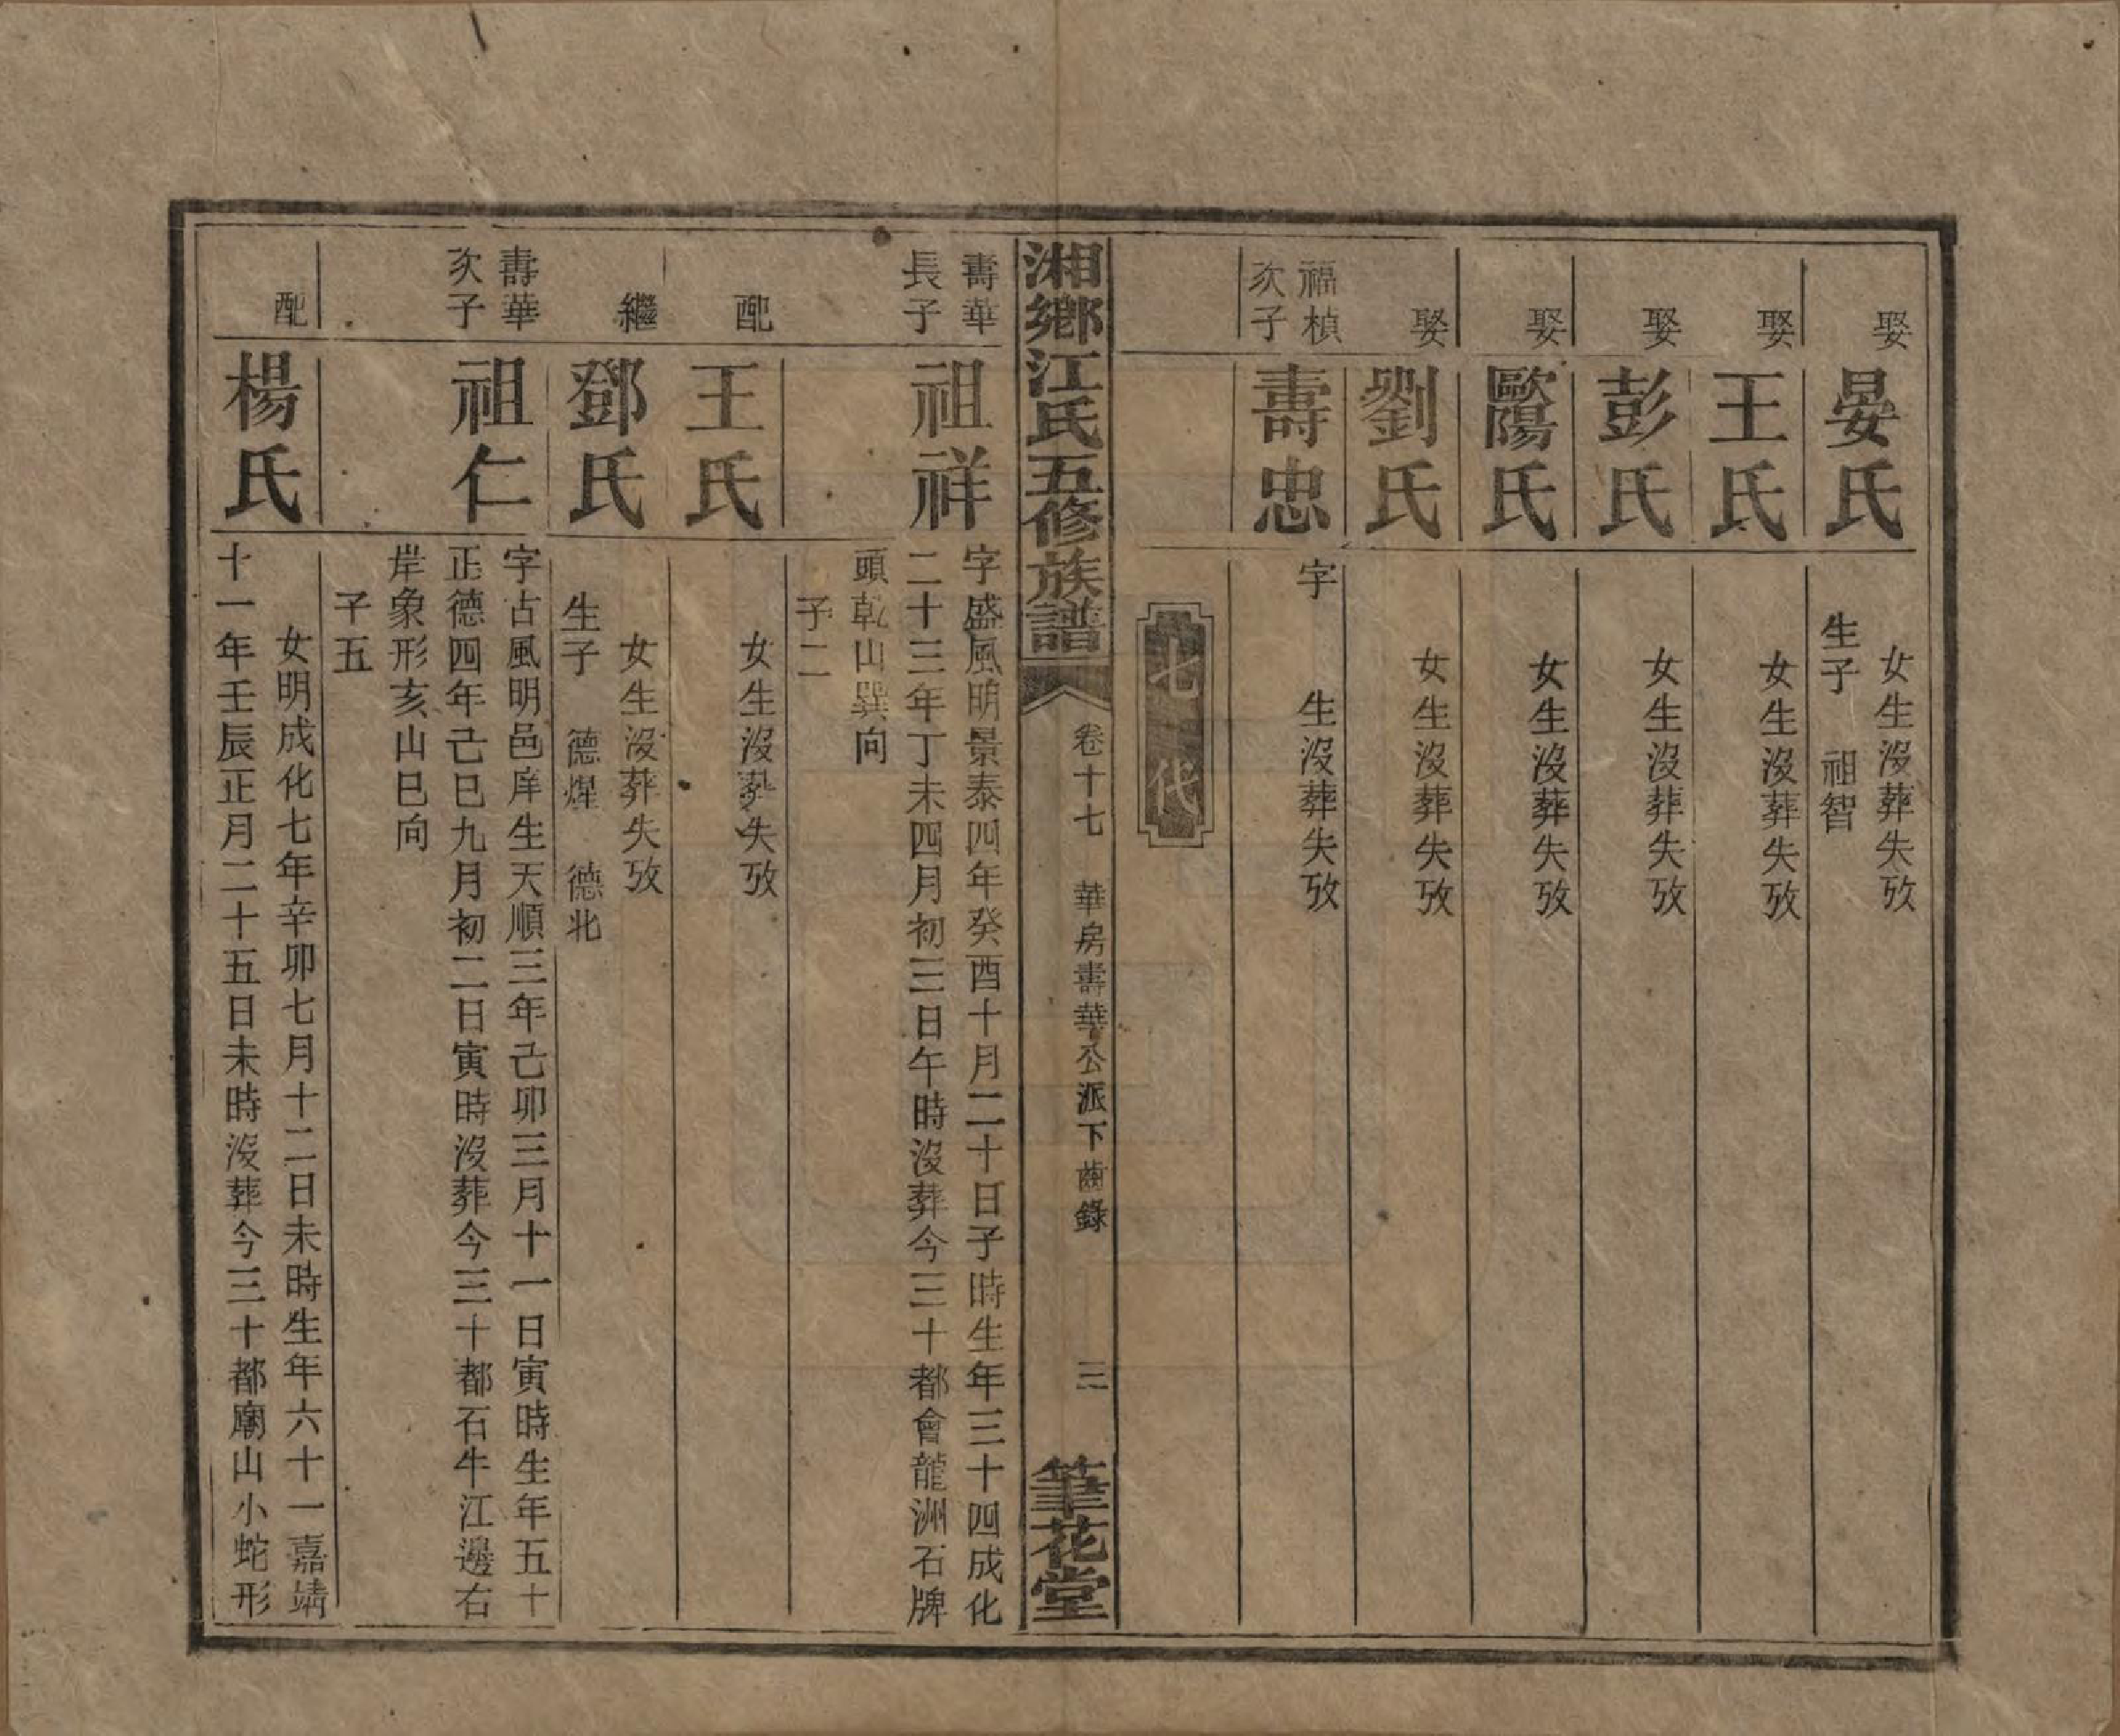 娶
晏氏
女生沒葬失攷
生子 祖智
娶
王氏
女生沒葬失攷
娶
彭氏
女生沒葬失攷
娶
歐陽氏
女生沒葬失攷
娶
劉氏
女生沒葬失攷
福楨
次子
壽忠
字 生沒葬失攷
七代
湘鄉江氏五修族譜
卷十七 華房壽華公派下齒錄
三
筆花堂
壽華
長子
祖祥
字盛風明景泰四年癸酉十月二十日子時生年三十四成化
二十三年丁未四月初三日午時沒葬今三十都會龍洲石牌
頭乾山巽向
子二
配
王氏
女生沒葬失攷
繼
鄧氏
女生沒葬失攷
生子 德煋 德北
壽華
次子
祖仁
字古風明邑庠生天順三年己卯三月十一日寅時生年五十
正德四年己巳九月初二日寅時沒葬今三十都石牛江邊右
岸象形亥山巳向
子五
配
楊氏
女明成化七年辛卯七月十二日未時生年六十一嘉靖
十一年壬辰正月二十五日未時沒葬今三十都廟山小蛇形